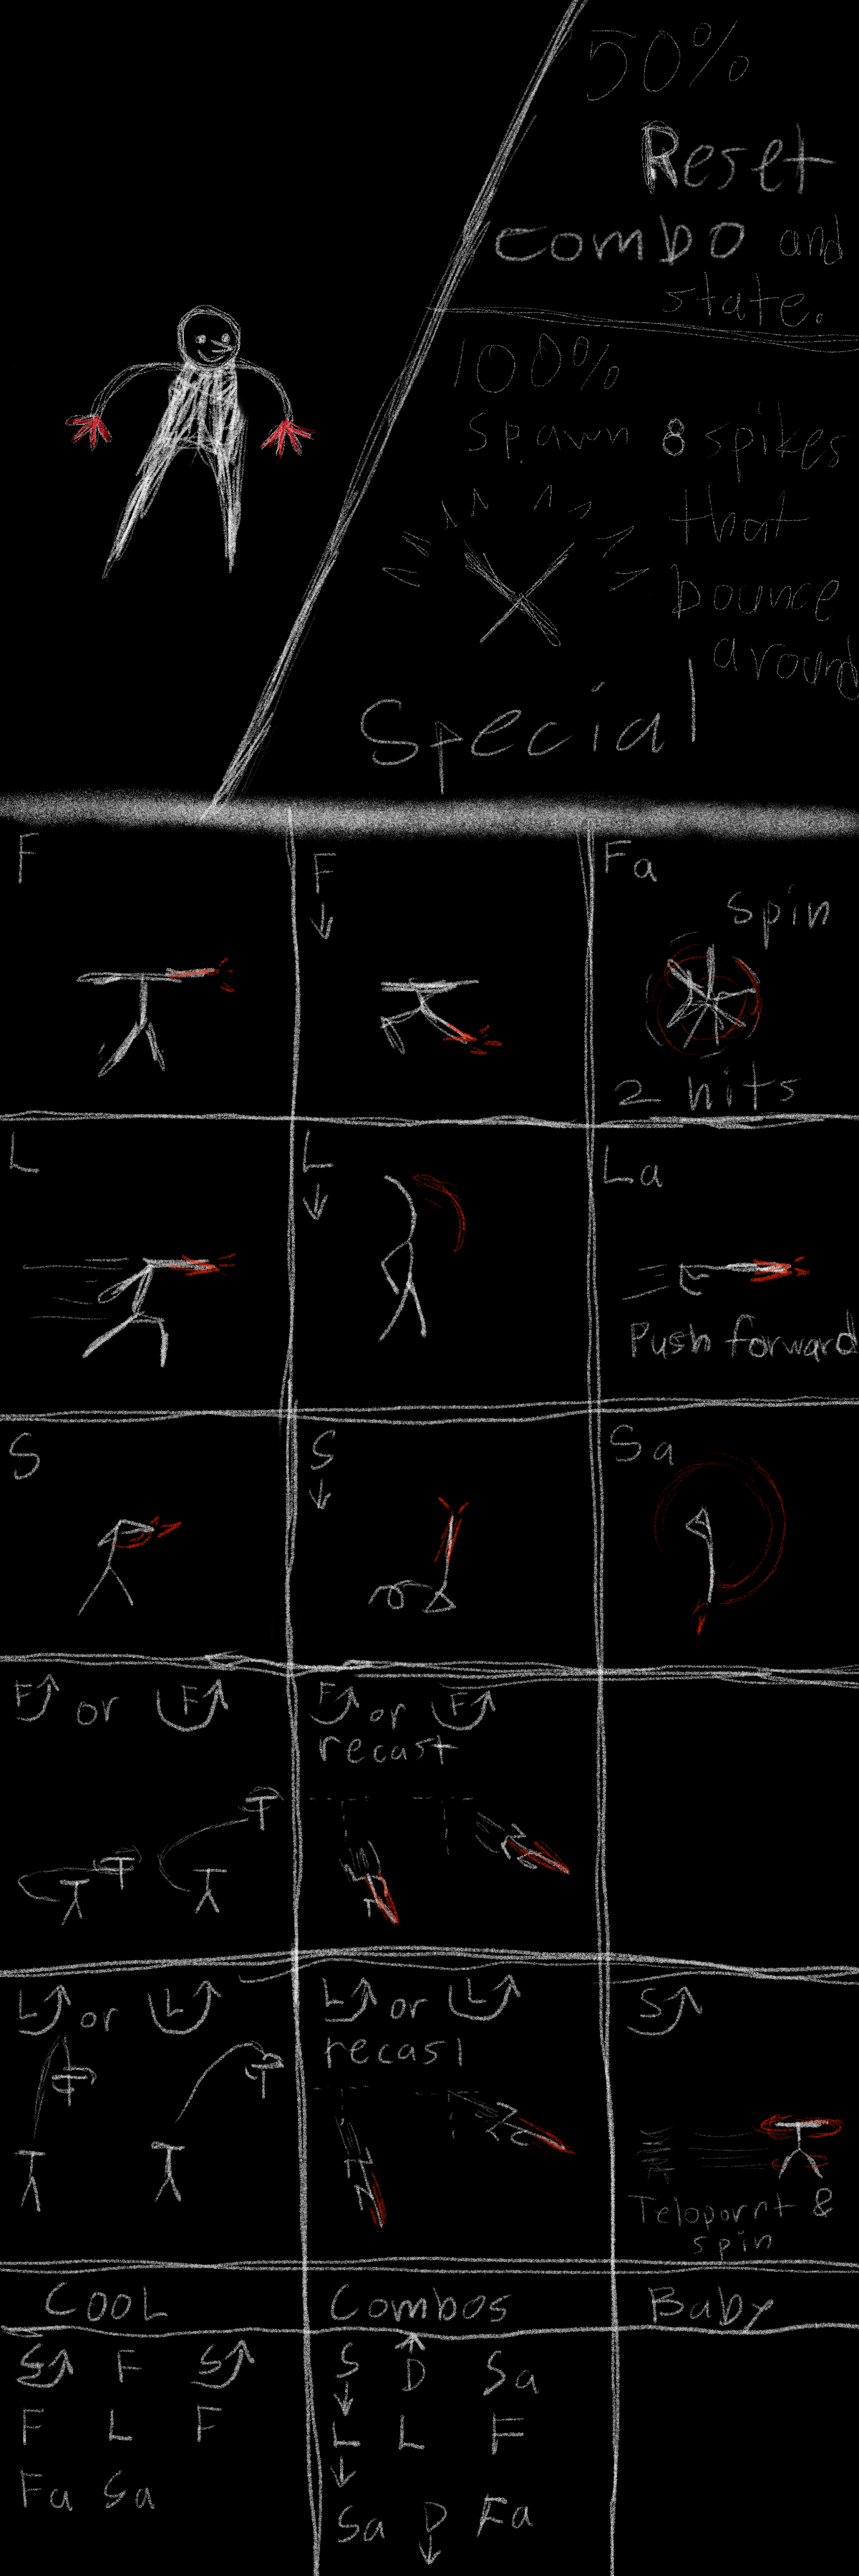 50%
Reset
combo and
state.
100%
Spawn 8 spikes
that
bounce
around
Special
F
F ↓
Fa
Spin
2 hits
L
L ↓
La
Push forward
S
S ↓
Sa
F⤴ or F⤴
F⤴ or F⤴
recast
L⤴ or L⤴
L⤴ or L⤴
recast
S⤴
Telopornt &
spin
COOL
Combos
Baby
S⤴ F S⤴
F L F
Fa Sa
S ↓ D ↑ Sa
L ↓ L F
Sa D ↓ Fa